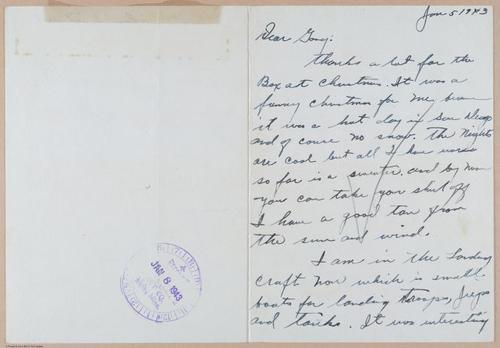 Jan 5 1943
Dear Gang:
Thanks a lot for the
Box at Christmas. It was a
funny Christmas for me
it was a hot day in San Diego
and of course no snow. the Nights
are cool but all I have worn
so far is a sweater. and by noon
you can take your shirt off
I have a good tan from
the sun and wind.
I am in the Landing
craft now which is small
boats for landing troops, Jeeps
and tanks. It was interesting
JAN 8 1943